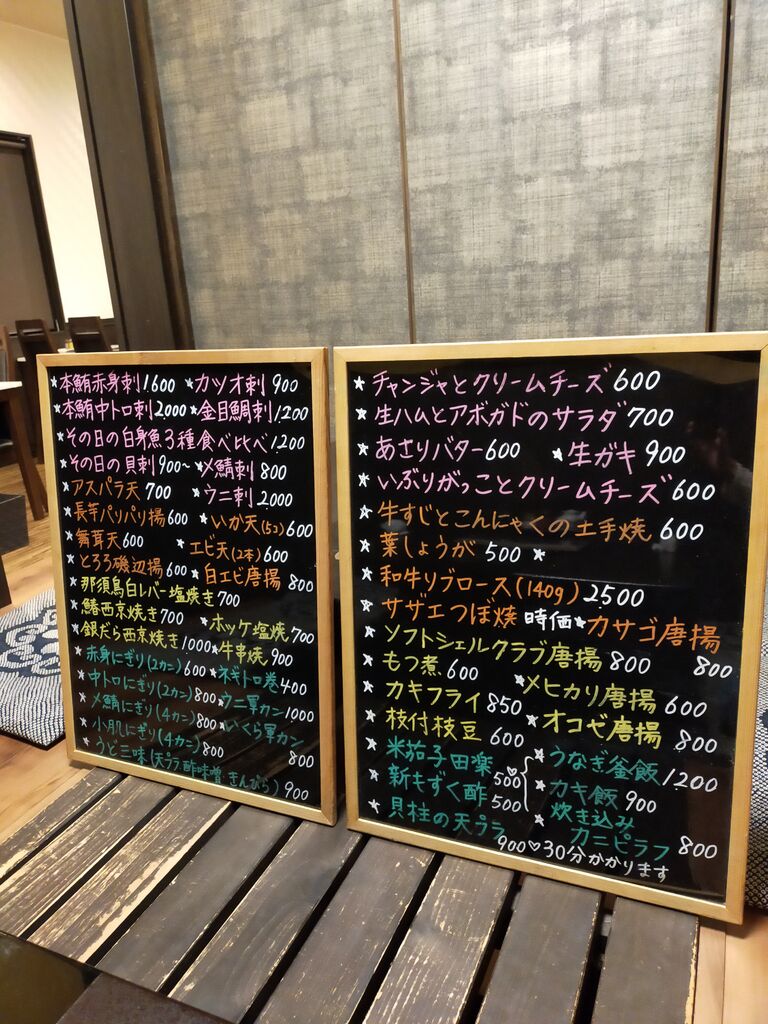 ★本鮪赤身刺 1.600 ★カツオ刺 900
★本鮪中トロ刺 2.000 ★金目鯛刺 1.200
★その日の白身魚3種食べ比べ 1.200
★その日の貝刺 900~ ★〆鯖刺 800
★アスパラ天 700 ★ウニ刺 2.000
★長芋パリパリ揚 600 ★いか天(5コ) 600
★舞茸天 600 ★エビ天(2本) 600
★とろろ磯辺揚 600 ★白エビ唐揚 800
★那須鳥白レバー塩焼き 700
★鰆西京焼き 700 ★ホッケ塩焼 700
★銀だら西京焼き 1000 ★牛串焼 900
★赤身にぎり(2カン) 600 ★ネギトロ巻 400
★中トロにぎり(2カン) 800 ★ウニ軍カン 1000
★〆鯖にぎり(4カン) 800 ★いくら軍カン 800
★小肌にぎり(4カン) 800
★うど三味(天プラ、酢味噌、きんぴら) 900
★チャンジャとクリームチーズ 600
★生ハムとアボガドのサラダ 700
★あさりバター 600 ★生ガキ 900
★いぶりがっことクリームチーズ 600
★牛すじとこんにゃくの土手焼 600
★葉しょうが 500 ★
★和牛リブロース(140g) 2500
★サザエつぼ焼 時価 ★カサゴ唐揚 800
★ソフトシェルクラブ唐揚 800
★もつ煮 600 ★メヒカリ唐揚 600
★カキフライ 850
★枝付枝豆 600 ★オコゼ唐揚 800
★米茄子田楽 500 ★うなぎ釜飯 1200
★新もずく酢 500 ★カキ飯 900
★貝柱の天プラ 900 ★炊き込みカニピラフ 800
♡30分かかります